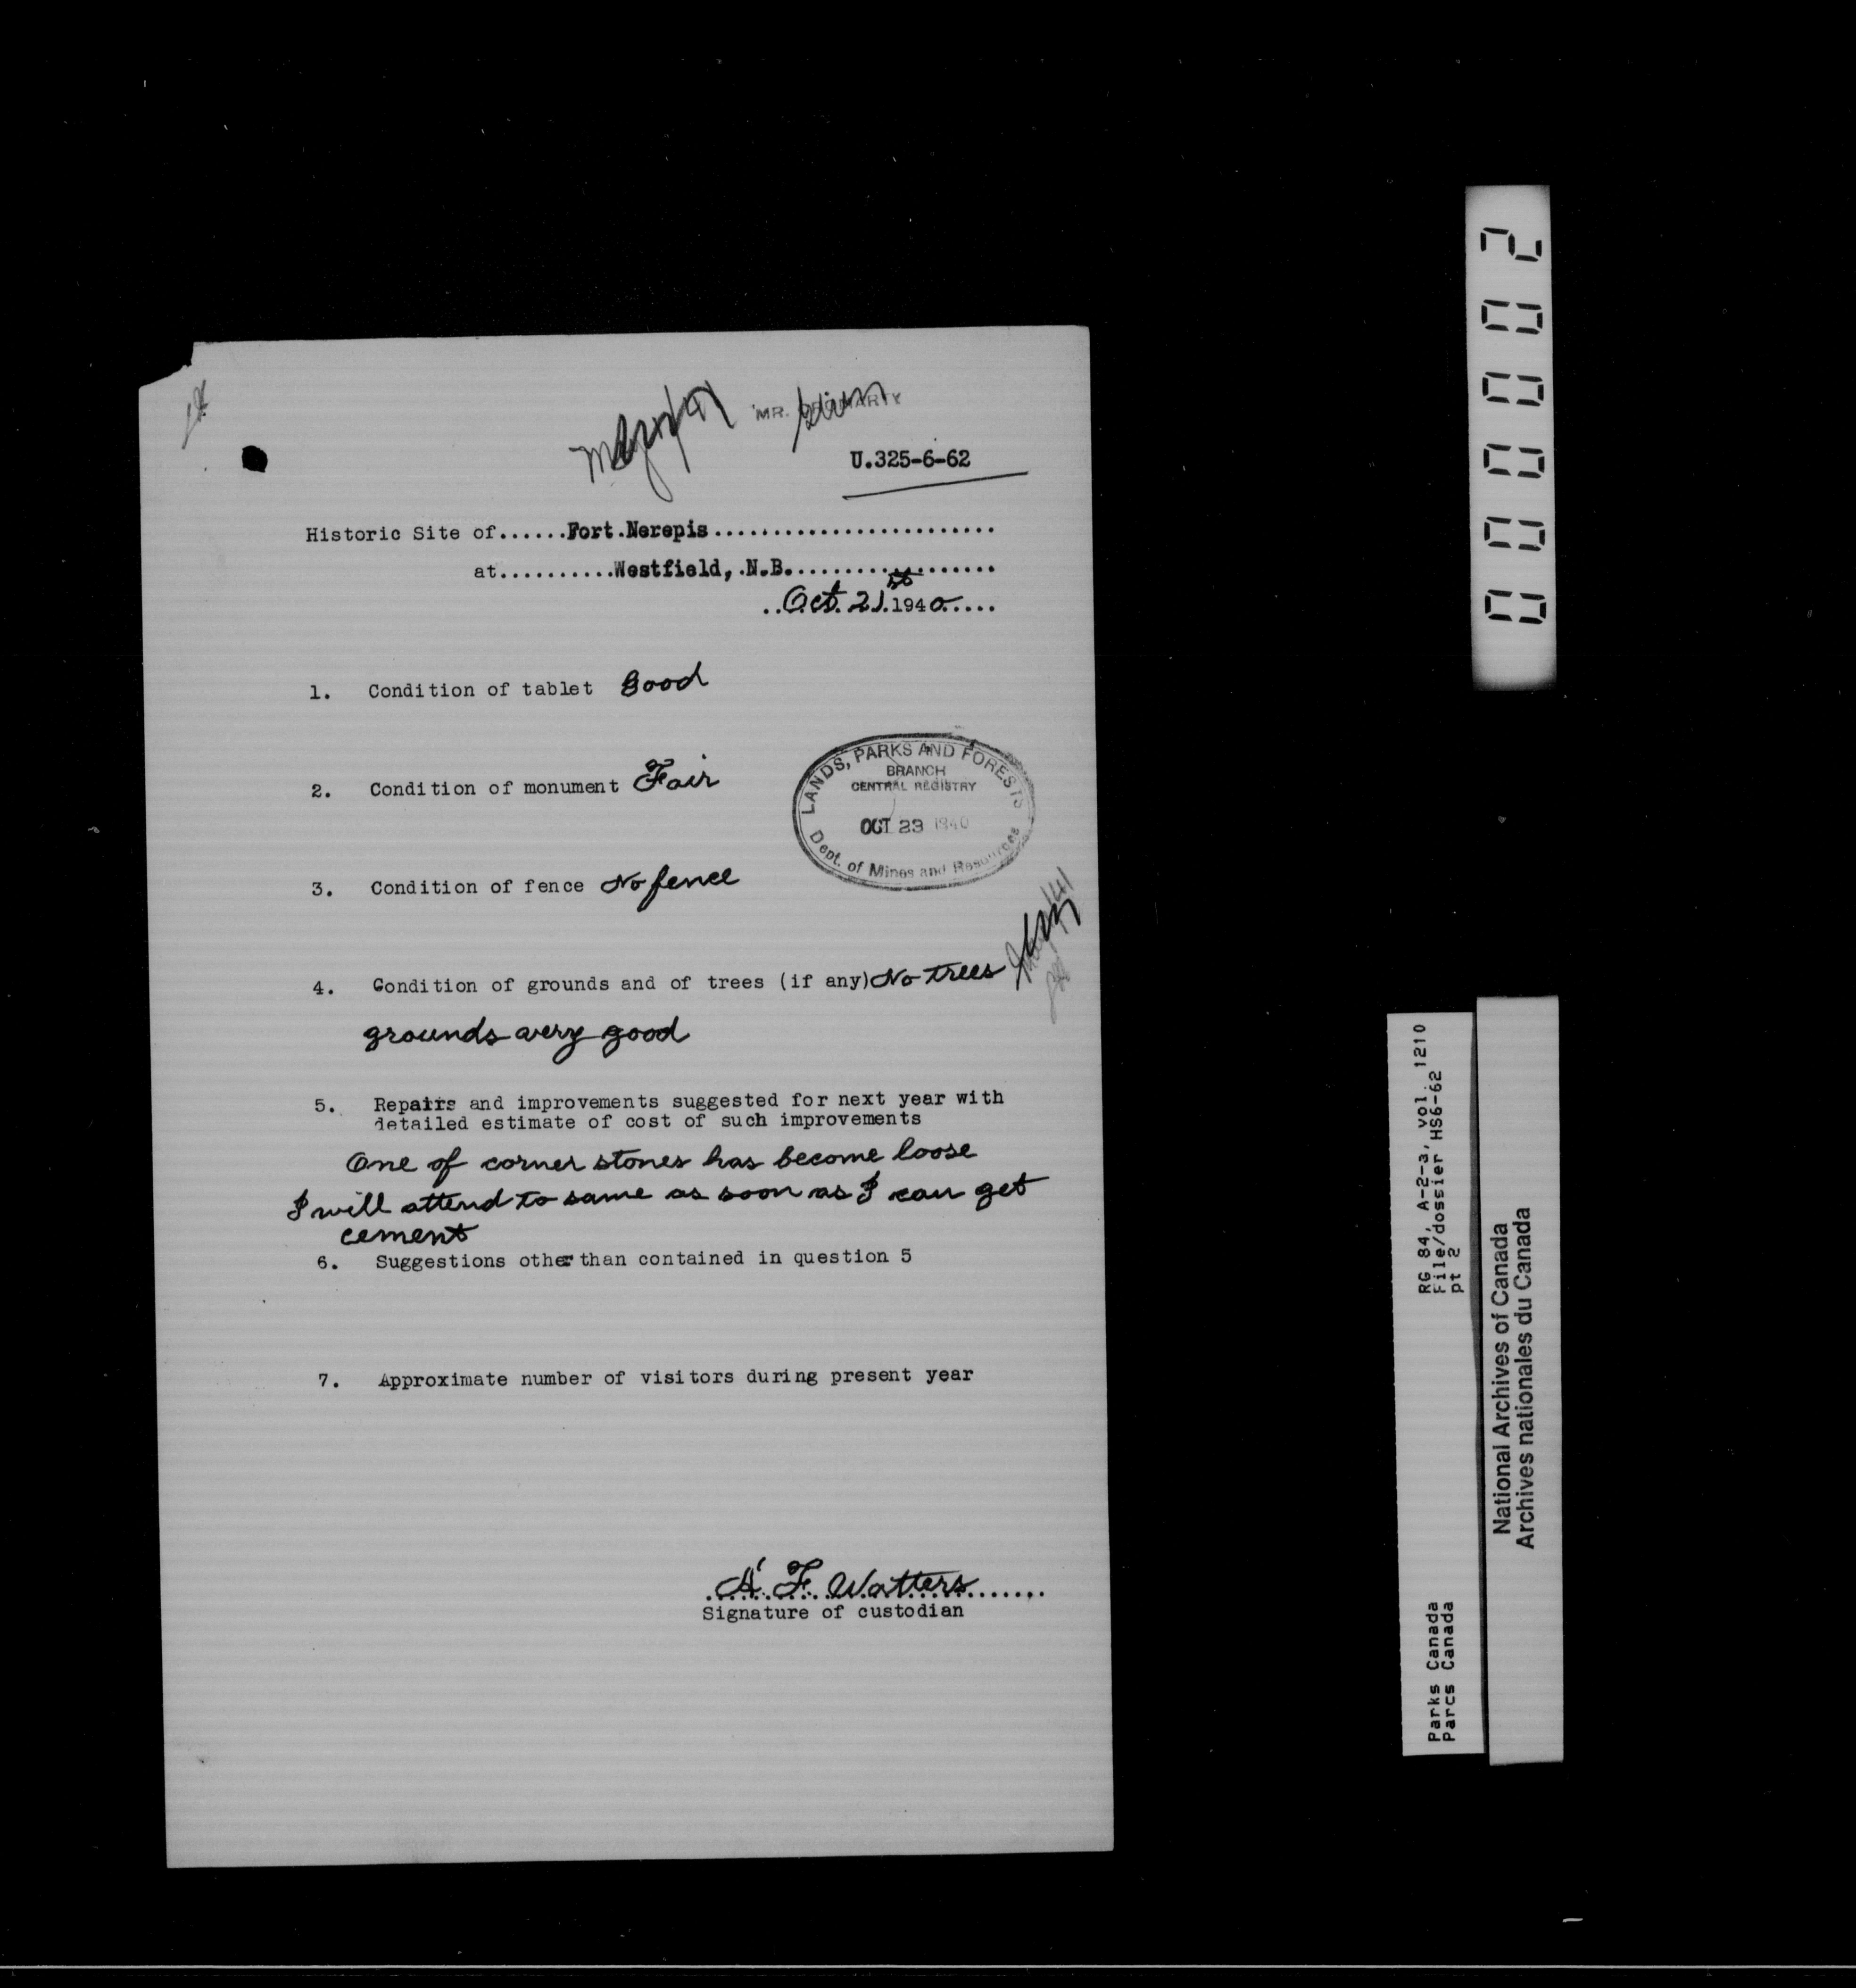 MR.
U.325-6-62
Historic Site of......Fort.Nerepis........................
at..........Westfield,.N.B...................
..Oct. 21.st 1940.....
1. Condition of tablet Good
2. Condition of monument Fair
LANDS, PARKS AND FORESTS
BRANCH
CENTRAL REGISTRY
OCT 23 1940
Dept. of Mines and Resources
3. Condition of fence No fence
4. Condition of grounds and of trees (if any) No trees
grounds avery good
5. Repairs and improvements suggested for next year with
detailed estimate of cost of such improvements
One of corner stones has become loose
I will attend to same as soon as I can get
cement
6. Suggestions other than contained in question 5
7. Approximate number of visitors during present year
A. F. Watters
Signature of custodian
000002
RG 84, A-2-3, vol. 1210
File/dossier HS6-62
pt 2
Parks Canada
Parcs Canada
National Archives of Canada
Archives nationales du Canada